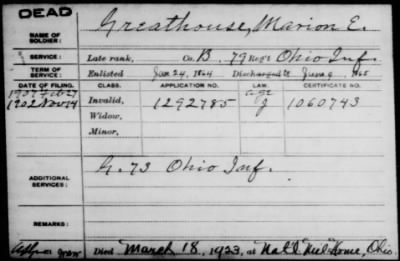 DEAD
NAME OF SOLDIER: Greathouse, Marion E.
SERVICE: Late rank, Co. B. 79 Reg't Ohio Inf.
TERM OF SERVICE: Enlisted Jan 24, 1864 Discharged June 9, 1865
DATE OF FILING. CLASS. APPLICATION NO. LAW. CERTIFICATE NO.
1907 Feb 27 age
1902 Nov 14 Invalid, 1292785 1060743
Widow,
Minor,
ADDITIONAL SERVICES: G. 73 Ohio Inf.
REMARKS:
Died March 18, 1923, at Nat'l Mil Home, Ohio